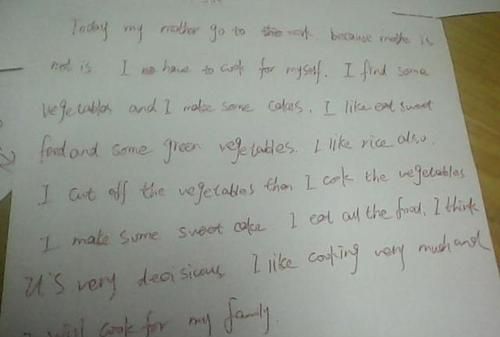 Today my mother go to the work. because mothe is
not is I have to cook for myself. I find some
vegetables and I make some cakes. I like eat sweet
food and some green vegetables. I like rice also.
I cut off the vegetables then I cook the vegetables
I make some sweet cake I eat all the food. I think
it's very decisious I like cooking very much and
I will cook for my family.